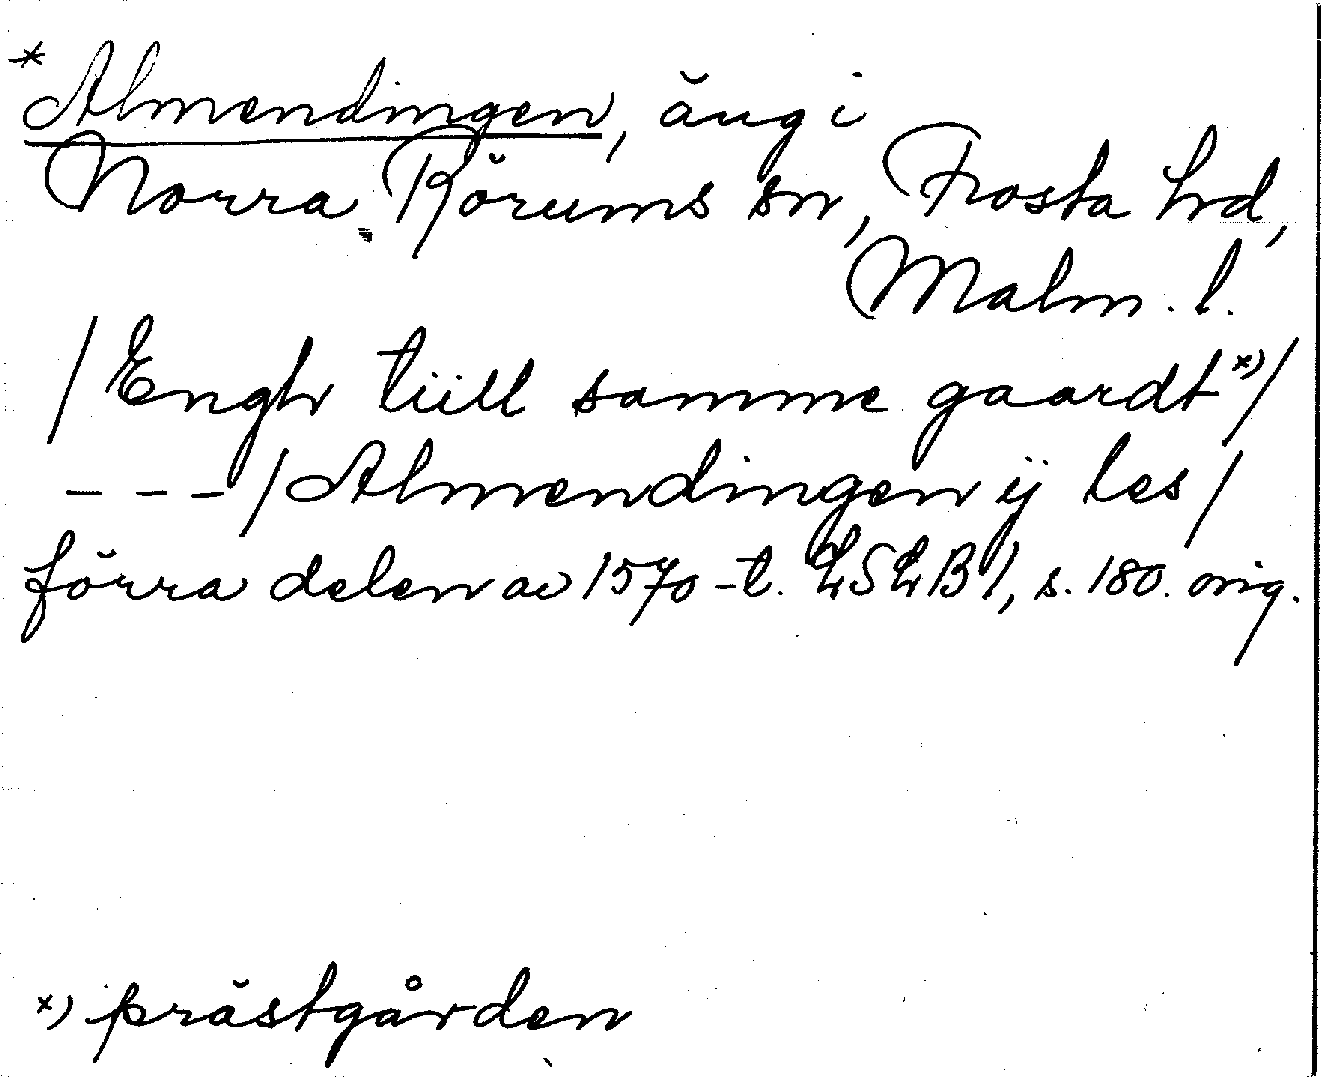 *Almendingen, äng i
Norra Rörums sn, Frosta hd,
Malm. l.
/Engh tiill samme gaardt x)/
--- /Almendingen ij les/
förra delen av 1570-t. LSLB I, s. 180. orig.
x) prästgården